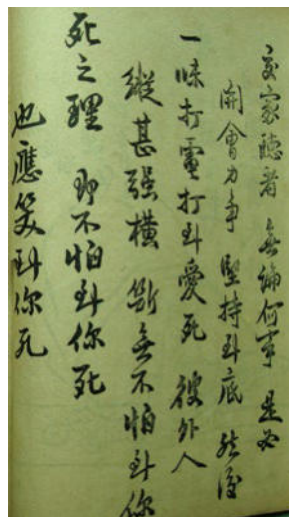 交家聽者 無論何事 是必
開會力爭 堅持到底 然後
一味打電打到愛死 彼外人
縱甚强橫 斷無不怕到你
死之理 即不怕到你死
也應笑到你死